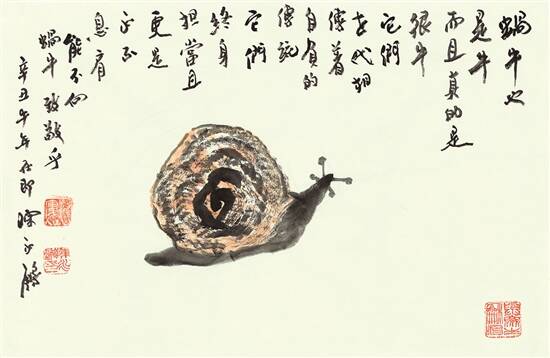 蝸牛也
是牛
而且真的是
很牛
它們
世代相
傳着
自負的
傳統
它們
終身
担當且
更是
永不
息肩
能不向
蝸牛致敬乎
辛丑牛年在即 陳永鏘